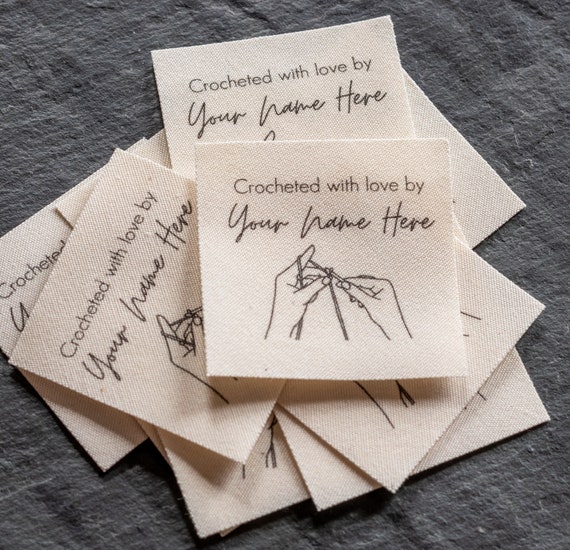 Crocheted with love by
Your Name Here
Crocheted with love by
Your Name Here
Crocheted with love by
Your Name Here
Crocheted